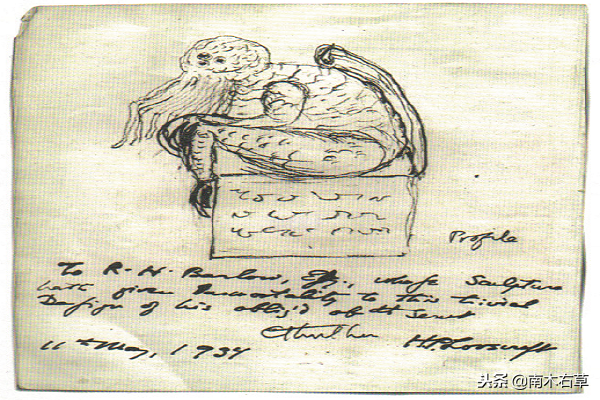 Profile
To R. H. Barlow, Esq., whose Sculpture
hath given Immortality to this trivial
Design of his oblig'd obdt Servt
Cthulhu H.P.Lovecraft
11th May, 1934
头条 @南木右草